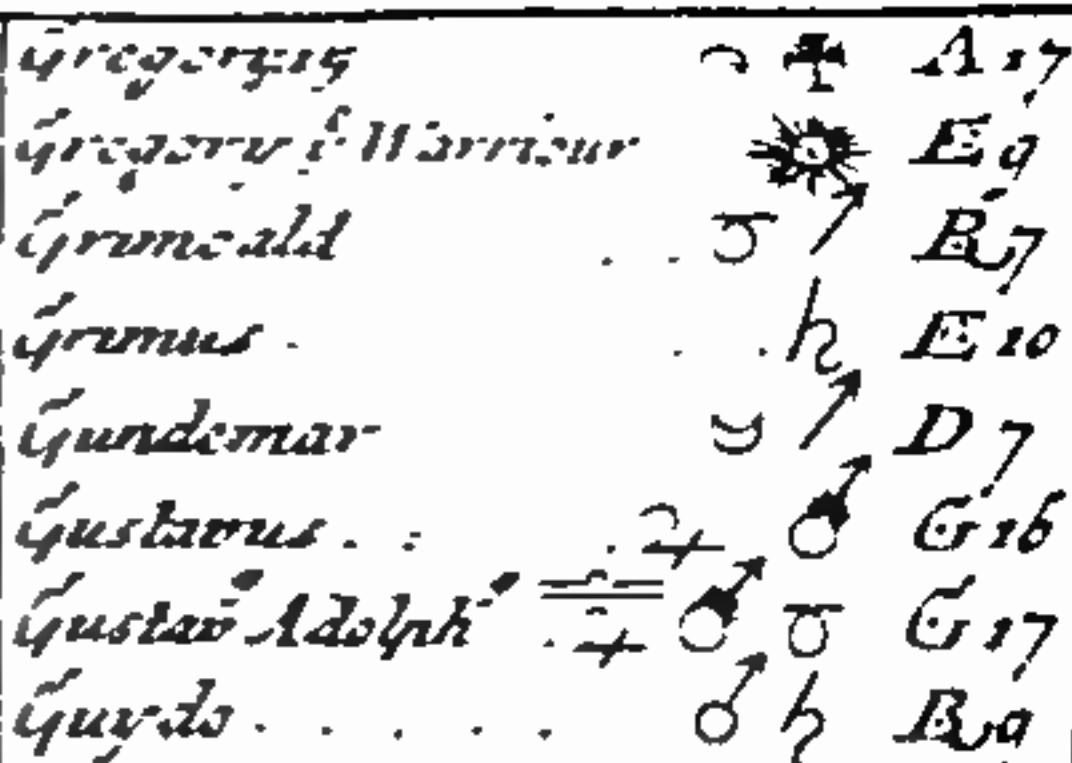 Gregory.15 A 17
Gregory ẏ Warriour E 9
Grimoald . . B 7
Grimus . . . E 10
Gundemar D 7
Gustavus . . . G 16
Gustav Adolph . G 17
Guydo . . . . . B 9